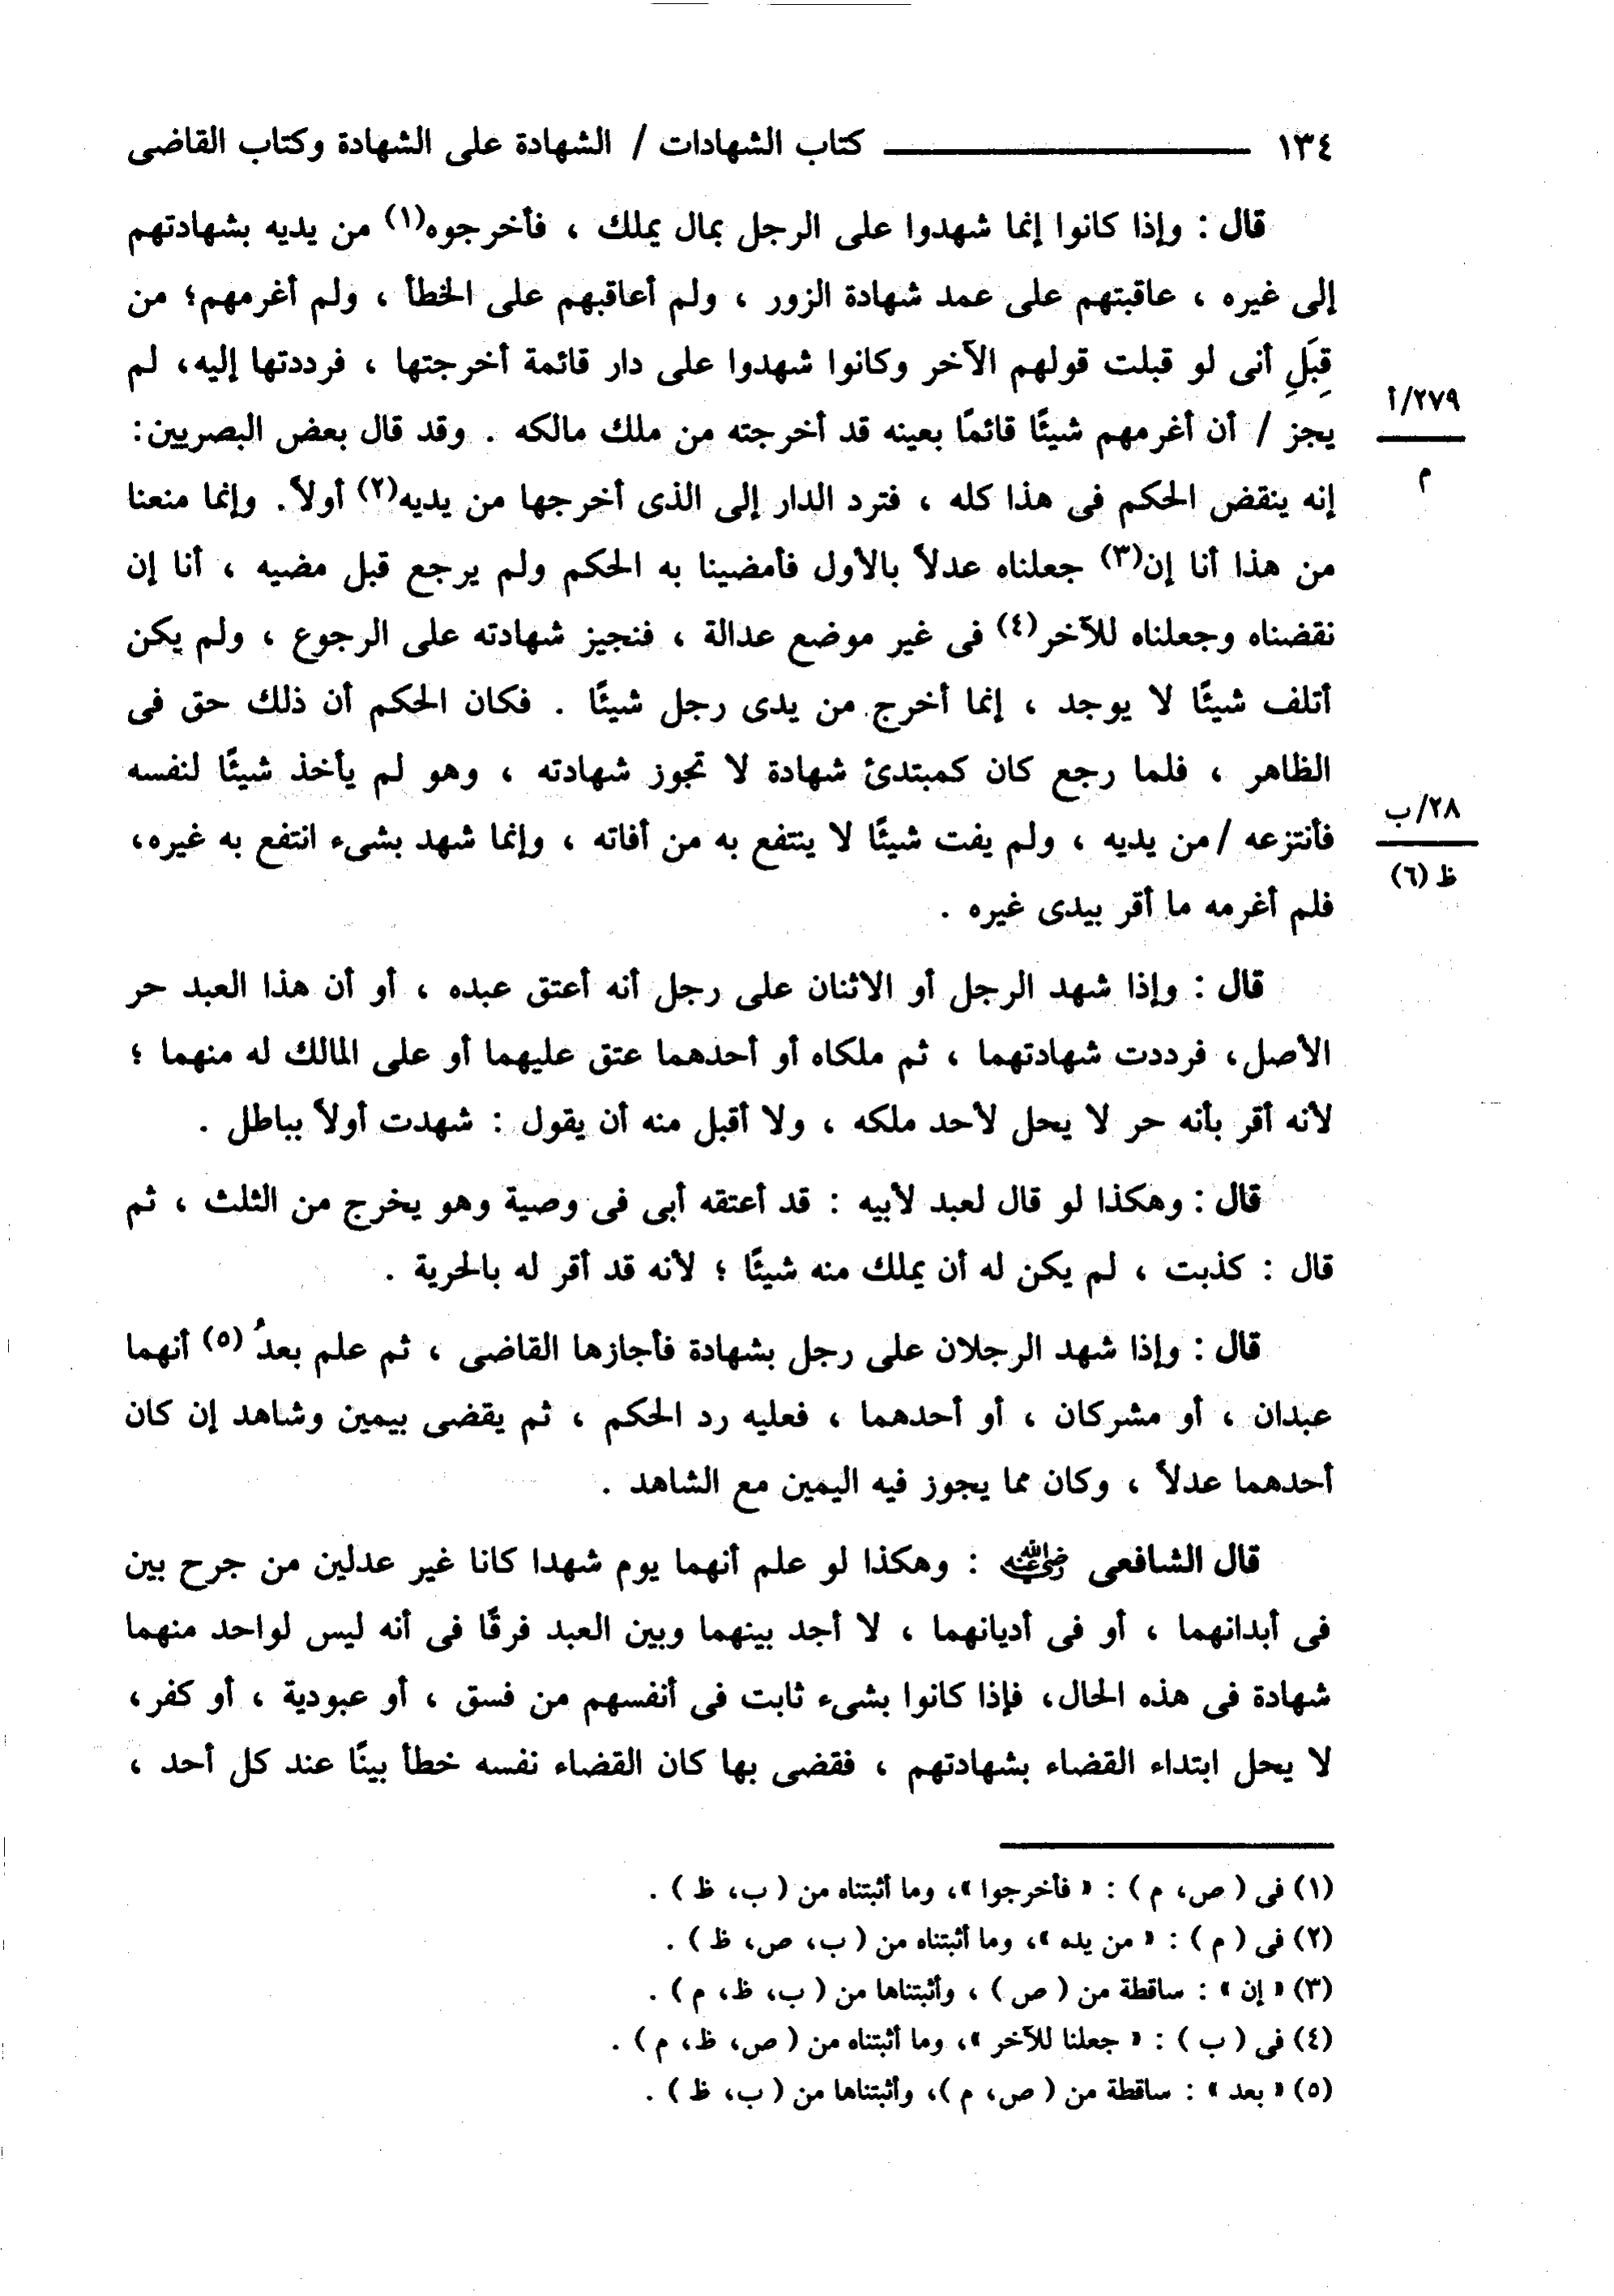 ١٣٤ ــــــــــــــــــــ كتاب الشهادات / الشهادة على الشهادة وكتاب القاضى
قال : وإذا كانوا إنما شهدوا على الرجل بمال يملك ، فأخرجوه(١) من يديه بشهادتهم
إلى غيره ، عاقبتهم على عمد شهادة الزور ، ولم أعاقبهم على الخطأ ، ولم أغرمهم؛ من
قِبَلِ أنى لو قبلت قولهم الآخر وكانوا شهدوا على دار قائمة أخرجتها ، فرددتها إليه، لم
٢٧٩/أ
م
يجز / أن أغرمهم شيئًا قائمًا بعينه قد أخرجته من ملك مالكه . وقد قال بعض البصريين:
إنه ينقض الحكم فى هذا كله ، فترد الدار إلى الذى أخرجها من يديه(٢) أولاً. وإنما منعنا
من هذا أنا إن(٣) جعلناه عدلاً بالأول فأمضينا به الحكم ولم يرجع قبل مضيه ، أنا إن
نقضناه وجعلناه للآخر(٤) فى غير موضع عدالة ، فنجيز شهادته على الرجوع ، ولم يكن
أتلف شيئًا لا يوجد ، إنما أخرج من يدى رجل شيئًا . فكان الحكم أن ذلك حق فى
الظاهر ، فلما رجع كان كمبتدئ شهادة لا تجوز شهادته ، وهو لم يأخذ شيئًا لنفسه
٢٨/ب
ظ (٦)
فأنتزعه / من يديه ، ولم يفت شيئًا لا ينتفع به من أفاته ، وإنما شهد بشىء انتفع به غيره،
فلم أغرمه ما أقر بيدى غيره .
قال : وإذا شهد الرجل أو الاثنان على رجل أنه أعتق عبده ، أو أن هذا العبد حر
الأصل، فرددت شهادتهما ، ثم ملكاه أو أحدهما عتق عليهما أو على المالك له منهما ؛
لأنه أقر بأنه حر لا يحل لأحد ملكه ، ولا أقبل منه أن يقول : شهدت أولاً بباطل .
قال : وهكذا لو قال لعبد لأبيه : قد أعتقه أبى فى وصية وهو يخرج من الثلث ، ثم
قال : كذبت ، لم يكن له أن يملك منه شيئًا ؛ لأنه قد أقر له بالحرية .
قال : وإذا شهد الرجلان على رجل بشهادة فأجازها القاضى ، ثم علم بعدُ(٥) أنهما
عبدان ، أو مشركان ، أو أحدهما ، فعليه رد الحكم ، ثم يقضى بيمين وشاهد إن كان
أحدهما عدلاً ، وكان مما يجوز فيه اليمين مع الشاهد .
قال الشافعى رضي الله عنه : وهكذا لو علم أنهما يوم شهدا كانا غير عدلين من جرح بين
فى أبدانهما ، أو فى أديانهما ، لا أجد بينهما وبين العبد فرقًا فى أنه ليس لواحد منهما
شهادة فى هذه الحال، فإذا كانوا بشىء ثابت فى أنفسهم من فسق ، أو عبودية ، أو كفر،
لا يحل ابتداء القضاء بشهادتهم ، فقضى بها كان القضاء نفسه خطأ بينًا عند كل أحد ،
(١) فى ( ص، م ) : « فأخرجوا »، وما أثبتناه من ( ب، ظ ) .
(٢) فى ( م ) : « من يده »، وما أثبتناه من ( ب، ص، ظ ) .
(٣) « إن » : ساقطة من ( ص ) ، وأثبتناها من ( ب، ظ، م ) .
(٤) فى ( ب ) : « جعلنا للآخر »، وما أثبتناه من ( ص، ظ، م ) .
(٥) « بعد » : ساقطة من ( ص، م )، وأثبتناها من ( ب، ظ ) .